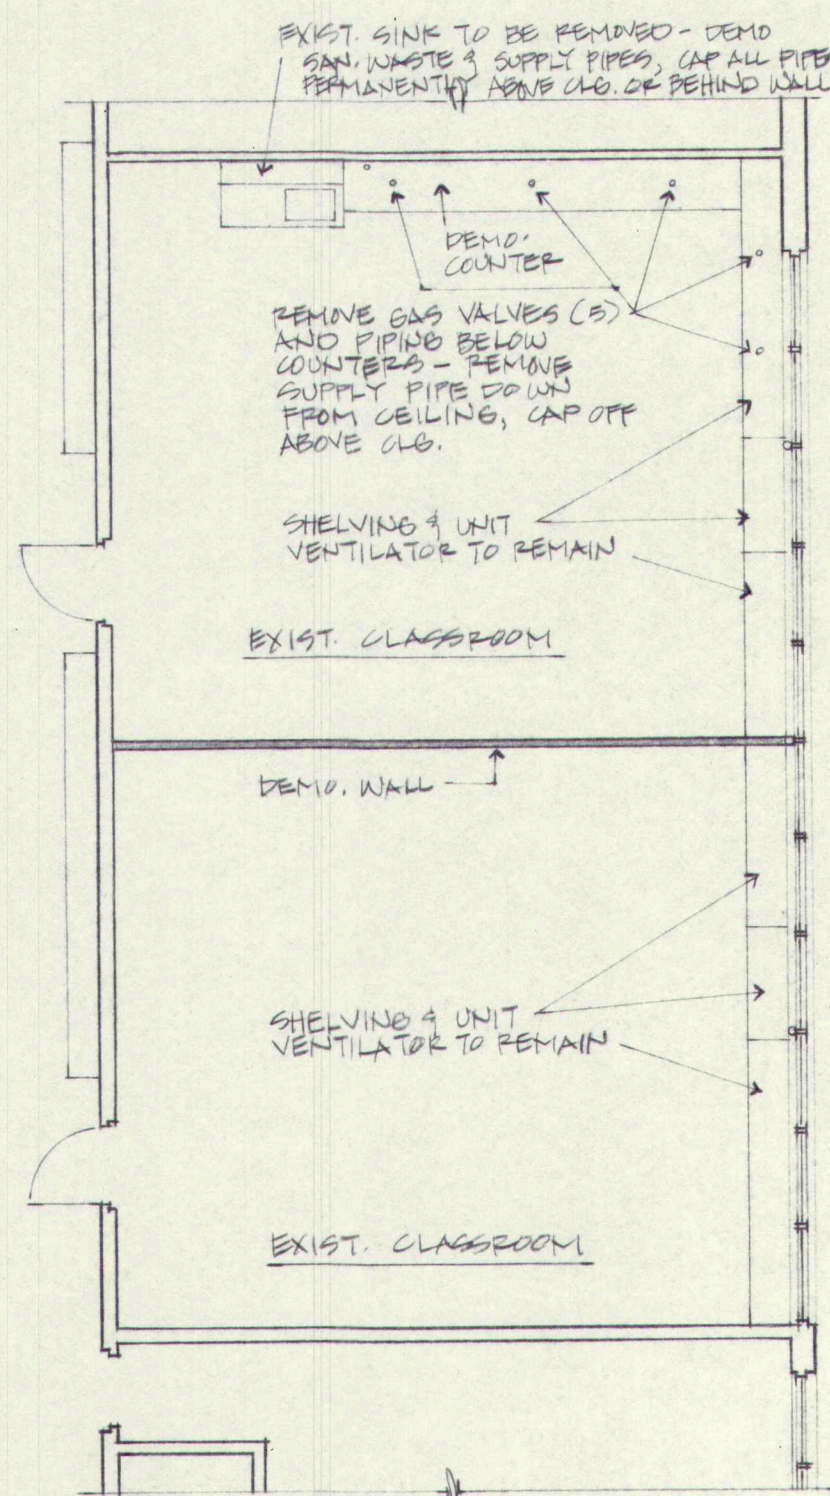 EXIST. SINK TO BE REMOVED - DEMO
SAN. WASTE & SUPPLY PIPES, CAP ALL PIPE
PERMANENTLY ABOVE CLG. OR BEHIND WALL
DEMO.
COUNTER
REMOVE GAS VALVES (5)
AND PIPING BELOW
COUNTERS - REMOVE
SUPPLY PIPE DOWN
FROM CEILING, CAP OFF
ABOVE CLG.
SHELVING & UNIT
VENTILATOR TO REMAIN
EXIST. CLASSROOM
DEMO. WALL
SHELVING & UNIT
VENTILATOR TO REMAIN
EXIST. CLASSROOM